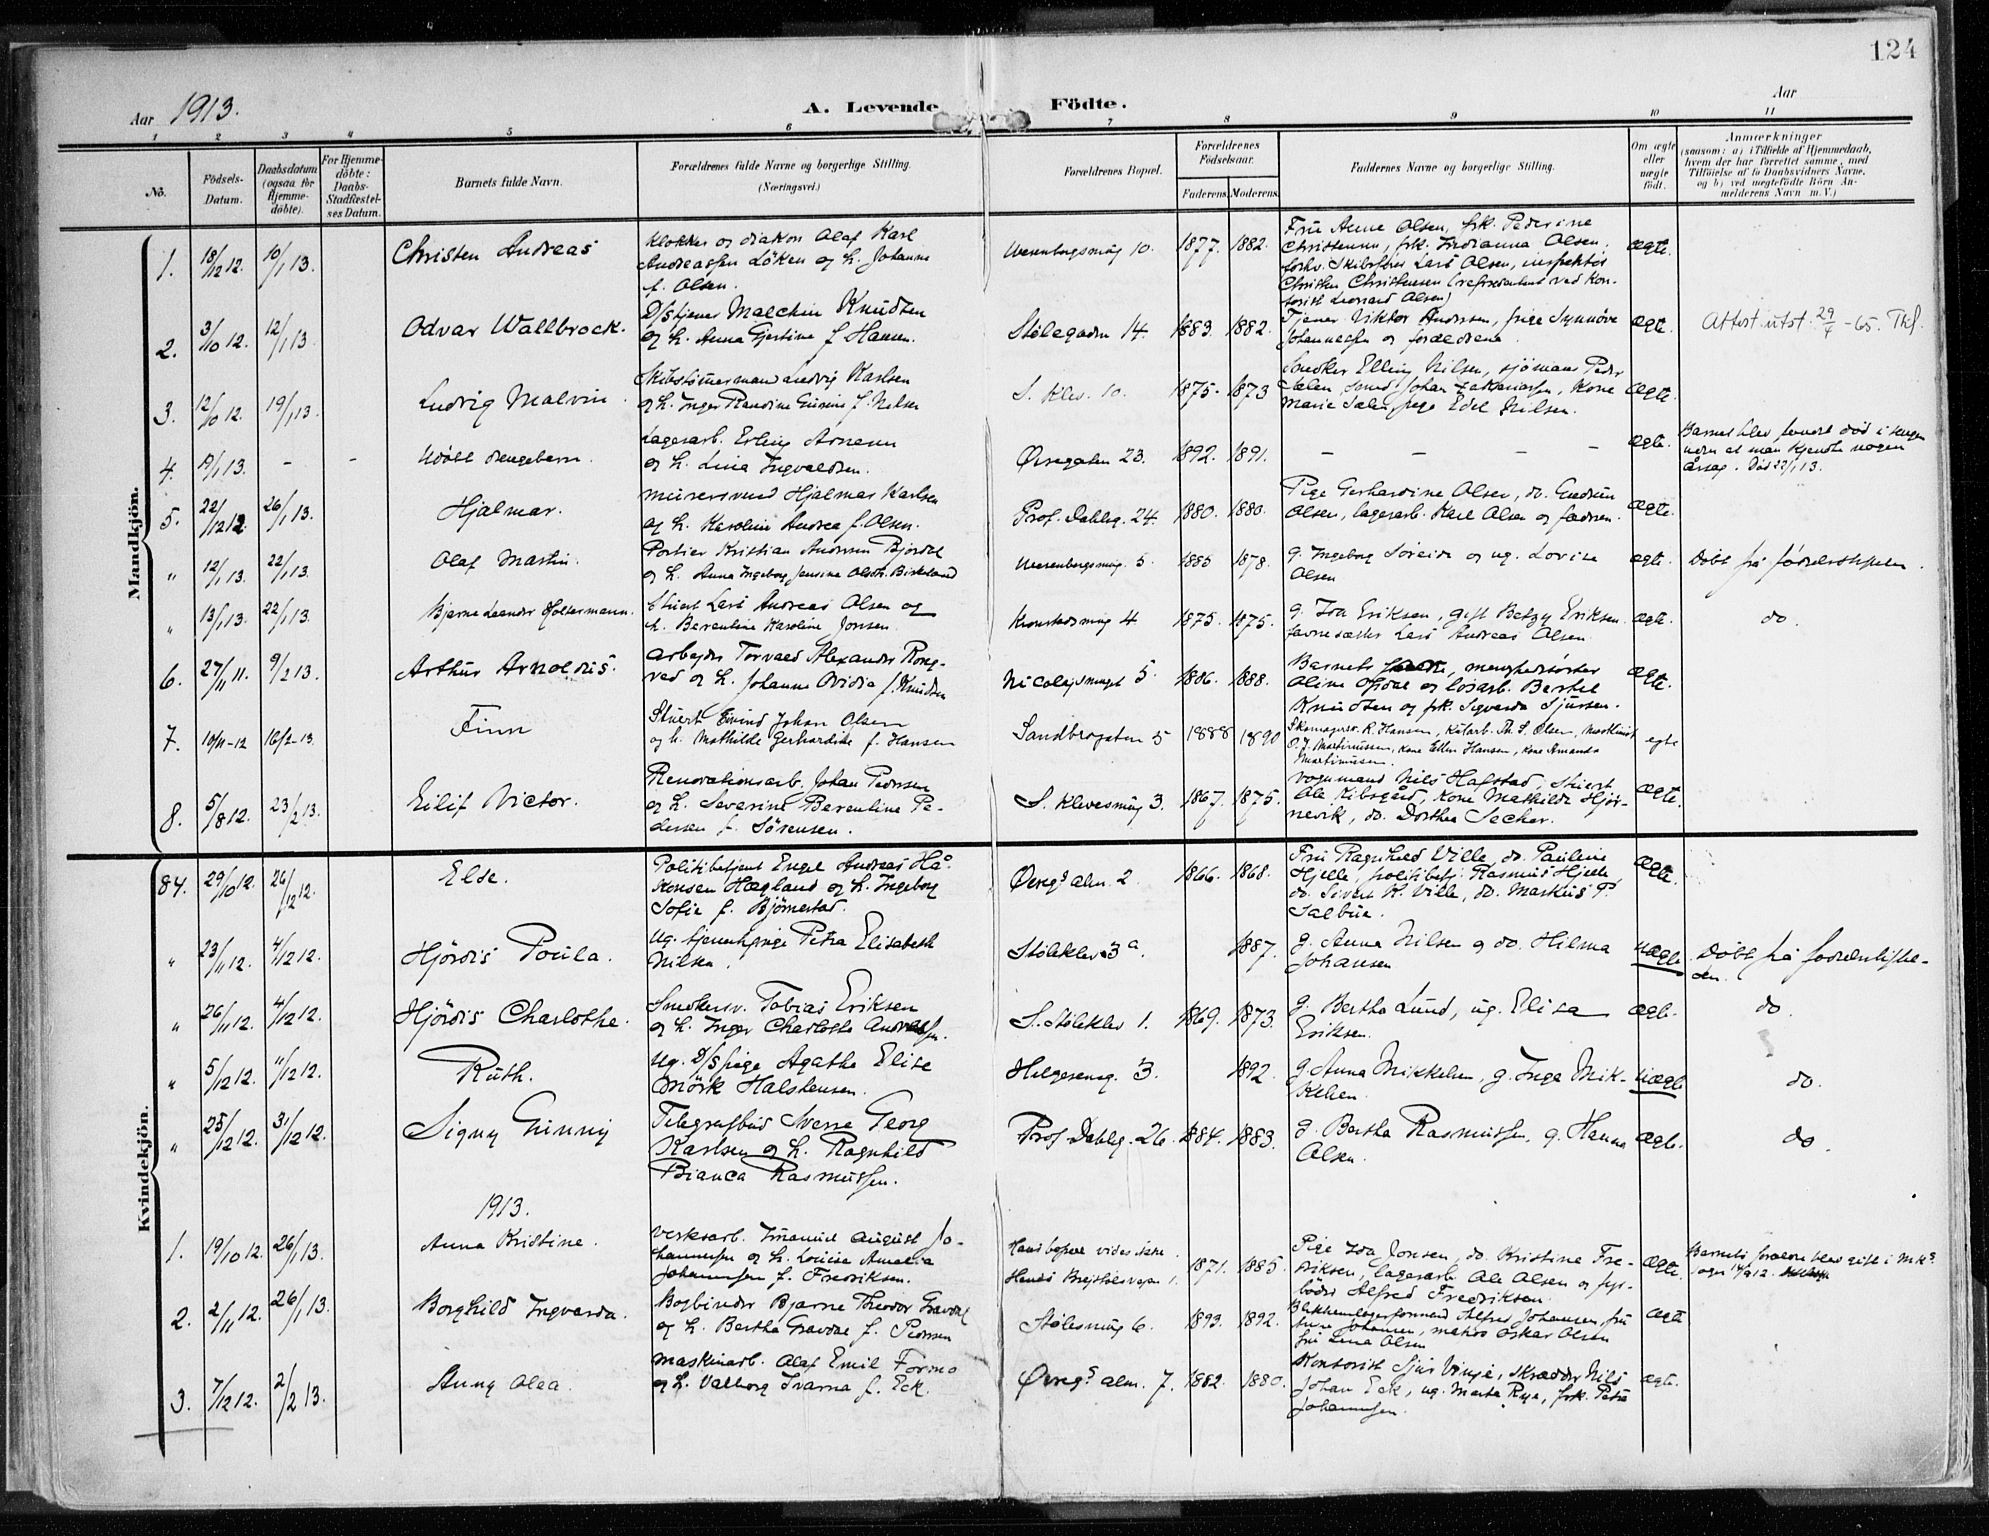 124
Aar 1913.
A. Levende Födte.
Aar
1 2 3 4 5 6 7 8 9 10 11
No.
Födsels-Datum.
Daabsdatum (ogsaa for Hjemme-döbte).
For Hjemme-döbte: Daabs-Stadfæstel-ses Datum.
Barnets fulde Navn.
Forældrenes fulde Navne og borgerlige Stilling.
(Næringsvei.)
Forældrenes Bopæl.
Forældrenes Födselsaar.
Faderens. Moderens.
Faddernes Navne og borgerlige Stilling.
Om ægte eller uægte födt.
Anmærkninger
(saasom: a) i Tilfælde af Hjemmedaab, hvem der har forrettet samme, med Tilföielse af to Daabsvidners Navne, og b) ved uægtefödte Börn An-melderens Navn m. V.)
Mandkjön.
1. 18/12 12. 10/1 13. Christen Andreas
Klokker og diakon Olaf Karl
Andreassen Löken og h. Johanne
f. Olsen.
Wesenbergsmüg 10. 1877. 1882.
Früe Anne Olsen, frk. Pederine
Christensen, frk. Olsen,
forhv. Skibsfører Lars Olsen, inspektör
Christen Christensen (repræsentert ved Kon-
torist Leonard Olsen)
Ægte.
2. 3/10 12. 12/1 13. Odvar Wallbrock.
D/Stjener Malchin Knudsen
og h. Anna Gjertine f. Hansen.
Stølegaden 14. 1883. 1882.
Tjener Viktor Andersen, pige Synnöve
Johannessen og forældrene.
Ægte.
Attest utst. 29/4 - 65.
3. 12/10 12. 19/1 13. Ludvig Malvin.
Skibstömmermand Ludvig Karlsen
og h. Inger Randine f. Nilsen
S. Klev. 10. 1875. 1873
Snedker Elling Nilsen, sjömand Peder
Sælen, Johan Zakariassen, Kone
Marie Sælen, pige Edel Nilsen.
Ægte.
4. 19/1 13. - - Udöbt drengebarn.
Lagerarb. Erling Arnesen
og h. Lina Ingvaldsen.
Øvregaten 23. 1892. 1891. - - - -
Ægte.
Barnet blev fundet död i sengen
uden at man kjendte nogen
årsag. Död 22/1 13.
5. 22/12 12. 26/1 13. Hjalmar.
Mürersvend Hjalmar Karlsen
og h. Karoline Andrea f. Olsen.
Prof. Dahlsg. 24. 1880. 1880.
Pige Gerhardine Olsen, do. Gudrün
Olsen, lagerarb. Karl Olsen og fadren.
Ægte.
" 12/1 13. 22/1 13. Olaf Martin.
Portier Kristian Andersen Bjordal
og h. Anna Ingeborg Jensine Olsdtr. Birkeland
Wesenbergsmüg. 5. 1885 1878.
g. Ingeborg Søreide og ug. Lovise
Olsen
Ægte.
Döbt på fødselsstiftelsen.
" 13/1 13. 22/1 13. Bjarne Leander Holtermann.
Stuert Lars Andreas Olsen og
h. Berentine Karoline Jonsen
Kronstadsmüg 4 1875. 1875.
g. Ida Eriksen, gift Betzy Eriksen
Lars Andreas Olsen.
Ægte.
do.
6. 27/11 11. 9/2 13. Arthür Arnoldüs.
Arbeyder Torvald Alexander Rong-
ved og h. Johanne Ovidia f. Knudsen
Nicolaysmüget 5. 1886. 1888.
Barnets menighedssöster
Oline Opdal og lösarb. Bertel
Knüdsen og frk. Sigvarda Sjursen.
Ægte.
7. 10/11-12 16/2-13. Finn
Stuert Eivind Johan Olsen
og h. Mathilde Gerhardine f. Hansen
Sandbrogaten 5 1888 1890
Skomagersv. R. Hansen, Th. S. Olsen, Maskinist
O. J. Martinussen, kone Ellen Hansen, kone Amanda
Martinussen.
egte
8. 5/8 12. 23/2 13. Eilif Victor.
Renovationsarb. Johan Pedersen
og h. Severine Berentine Pe-
dersen f. Sørensen.
S. Klevesmüg 3. 1867. 1875.
Vognmand Nils Hafstad, Stuert
Ole Kibsgård, Kone Mathilde Hjör-
nevik, do. Dorthea Secher.
Ægte.
Kvindekjön.
84. 29/10 12. 26/12 12. Else.
Politibetjent Engel Andreas Hå-
konsen Hægland og h. Ingeborg
Sofie f. Björnestad.
Øvregs alm. 2. 1866. 1868.
Früe Ragnhild Ville, do. Pauline
Hjelle, politibetj. Rasmüs Hjelle,
do. Sivert K. Ville, do. Markus P.
Salbüe.
Ægte.
" 23/11 12. 4/12 12. Hjördis Poula.
Ug. tjenestepige Petra Elisabeth
Nilsen.
Støleklev 3a. 1887.
g. Anna Nilsen g do. Hilma
Johansen
Uægte
Döbt på fødselsstiftel-
sen.
" 26/11 12. 4/12 12. Hjördis Charlothe.
Snedkersv. Tobias Eriksen
og h. Inger Charlothe Andreassen.
S. Støleklev 1. 1869. 1873.
g. Bertha Lund, ug. Elisa
Eriksen.
Ægte.
do.
" 5/12 12. 11/12 12. Rüth.
Ug. D/S pige Agathe Elise
Mörk Halstensen.
Helgesensg. 3. 1892.
g. Anna Mikkelsen, g. Inga Mik-
kelsen.
Uægte
do.
" 25/12 12. 31/12 12. Signy Gunny
Telegrafbüd Sverre Georg
Karlsen og h. Ragnhild
Bianca Rasmussen.
Prof. Dahlsg. 26. 1884. 1883.
g. Bertha Rasmussen, g. Hanna
Olsen.
Ægte.
do.
1913.
1. 19/10 12. 26/1 13. Anna Kristine.
Verksarb. Imanuel August Jo-
hannesen og h. Louise Amalia
Johannesen f. Fredriksen.
Hans bopæl vides ikke.
Hendes Breistölsveien 1. 1871. 1885.
Pige Ida Jonsen, do. Kristine Fre-
driksen, lagerarb. Ole Olsen og fyr-
böder Alfred Fredriksen.
Ægte.
Barnets forældre blev gift i
12.
2. 2/11 12. 26/1 13. Borghild Ingvarda.
Bogbinder Bjarne Theodor Gravdal
og h. Bertha Gravdal f. Pedersen
Stølesmüg 6. 1893. 1892.
Blikkenslagerformand Alfred Johansen, frü
Anne Johansen, matros Oskar Olsen
frü Lina Olsen
Ægte
3. 7/12 12. 2/2 13. Anny Olea.
Maskinarb. Olaf Emil Formo
og h. Valborg Ivarna f. Eck.
Øvregs alm. 7. 1882. 1880.
Kontorist Sjur Vinje, Skrædder Nils
Johan Eck, ug. Marta Rye, frk. Petra
Johannesen.
Ægte.